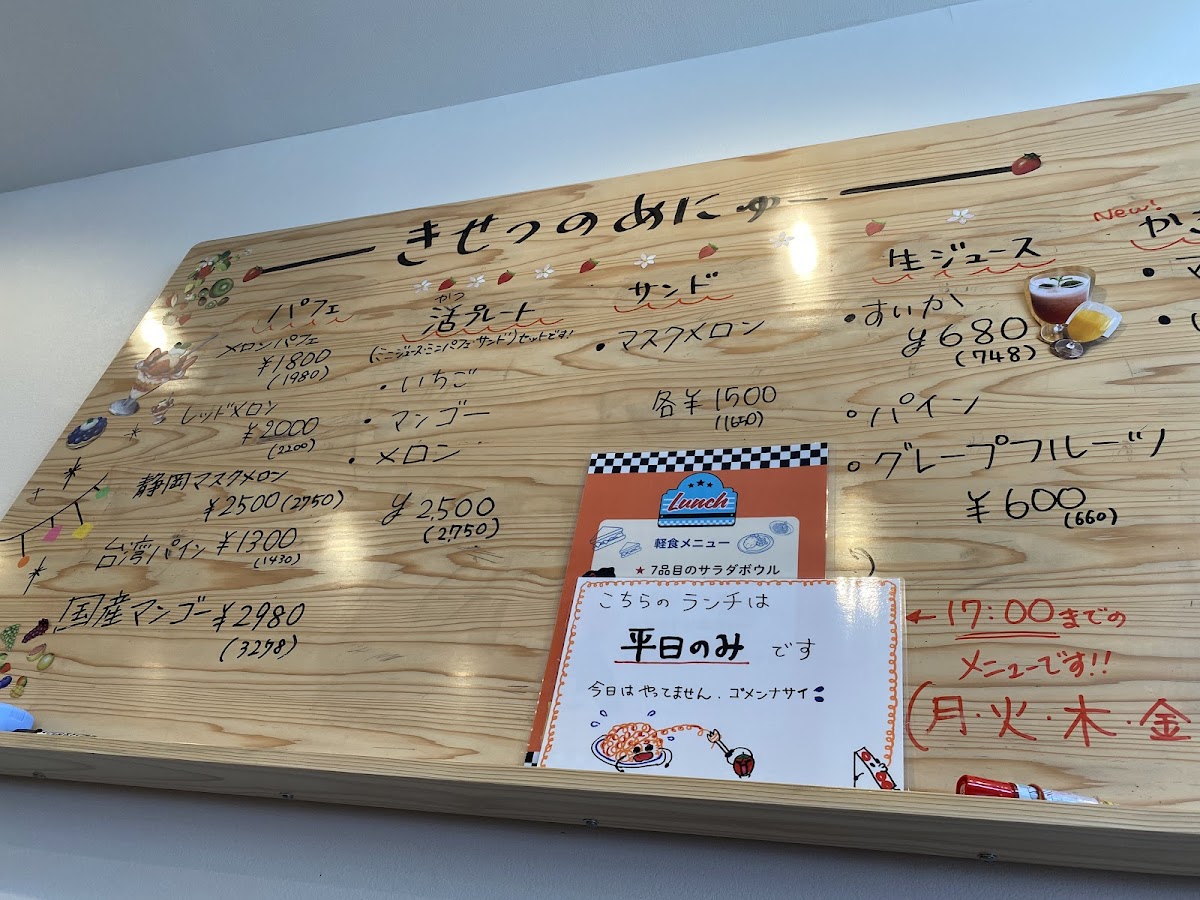 きせつのめにゅー
パフェ
メロンパフェ
¥1800
(1980)
レッドメロン
¥2000
(2200)
静岡マスクメロン
¥2500(2750)
台湾パイン ¥1300
(1430)
国産マンゴー ¥2980
(3278)
かつ
活プレート
(ミニジュース・ミニパフェ・サンド)セットです!
・いちご
・マンゴー
・メロン
¥2,500
(2,750)
サンド
・マスクメロン
各¥1500
(1650)
生ジュース
・すいか
¥680
(748)
・パイン
・グレープフルーツ
¥600
(660)
New!
Lunch
軽食メニュー
★ 7品目のサラダボウル
こちらの ランチは
平日のみ です
今日は やってません、ゴメンナサイ
←17:00までの
メニューです!!
(月・火・木・金